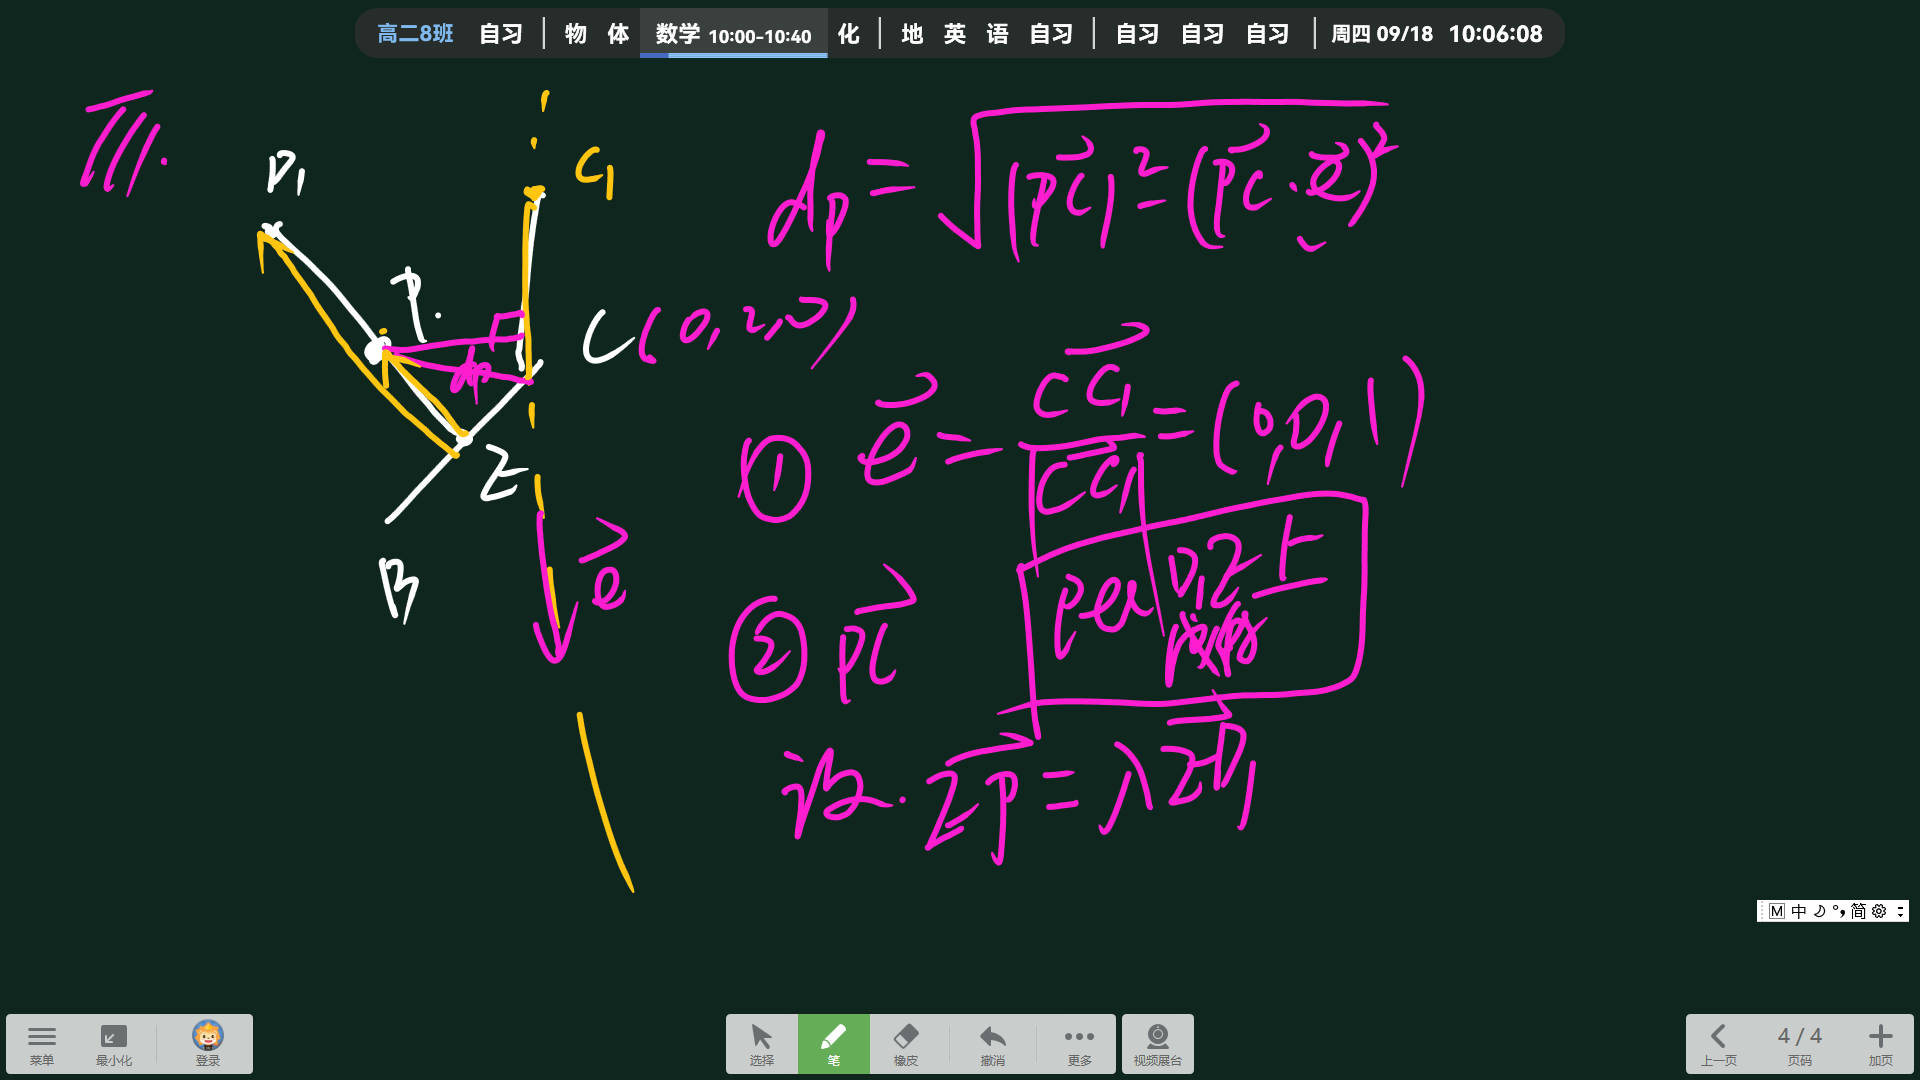 高二8班 自习 | 物 体 数学 10:00-10:40 化 | 地 英 语 自习 | 自习 自习 自习 | 周四 09/18 10:06:08
III.
D₁
C₁
P.
dp
C(0,2,0)
E
B
e
dp = √|PC|² - (PC·e)²
① e = CC₁ / |CC₁| = (0,0,1)
② PC
P在 D₁E上
设. EP = λ ED₁
M 中 简
菜单 最小化 登录
选择 笔 橡皮 撤消 更多 视频展台
上一页 4 / 4 页码 加页